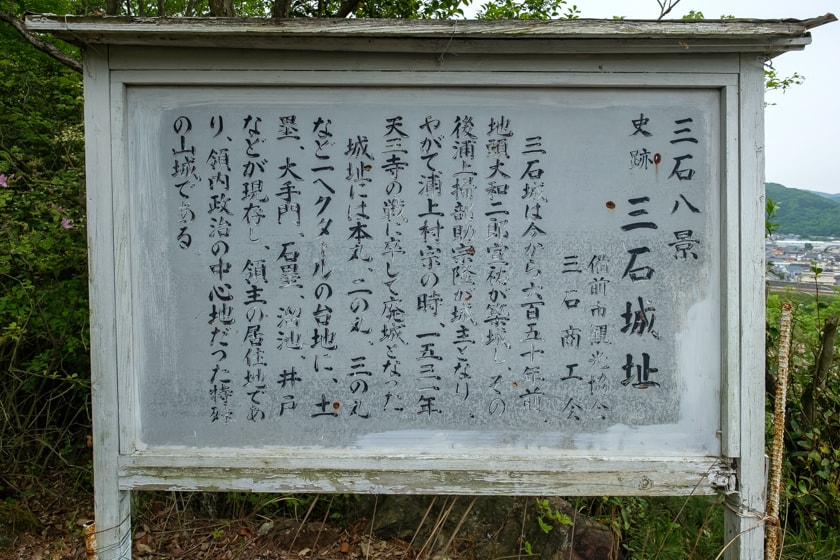 三石八景
史跡 三石城址
備前市観光協会
三石商工会
三石城は今から六百五十年前、
地頭大和二郎宣祐が築城し、その
後浦上掃部助宗隆が城主となり、
やがて浦上村宗の時、一五三一年
天王寺の戦に卒して廃城となった
城址には本丸、二の丸、三の丸
など二ヘクタールの台地に、土
塁、大手門、石塁、溜池、井戸
などが現存し、領主の居住地であ
り、領内政治の中心地だった特殊
の山城である